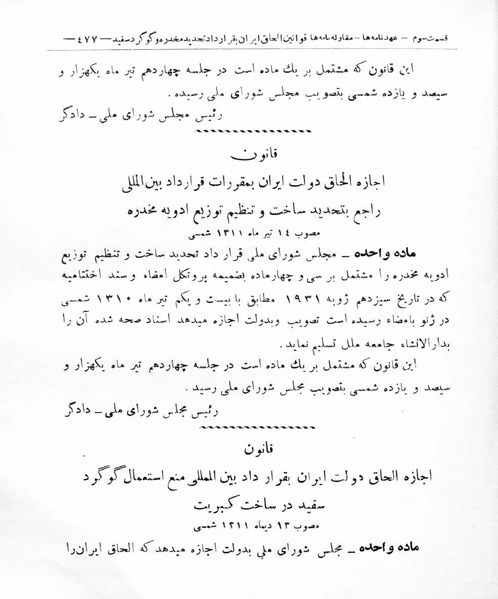 قسمت سوم – عهدنامه‌ها – مقاوله‌نامه‌ها قوانین الحاق ایران بقرارداد تحدید مخدره و گوگرد سفید — ٤٧٧—
این قانون که مشتمل بر یك ماده است در جلسه چهاردهم تیر ماه یکهزار و
سیصد و یازده شمسی بتصویب مجلس شورای ملی رسیده .
رئیس مجلس شورای ملی ــ دادگر
قانون
اجازه الحاق دولت ایران بمقررات قرارداد بین‌المللی
راجع بتحدید ساخت و تنظیم توزیع ادویه مخدره
مصوب ١٤ تیر ماه ١٣١١ شمسی
ماده واحده ــ مجلس شورای ملی قرار داد تحدید ساخت و تنظیم توزیع
ادویه مخدره را مشتمل بر سی و چهار ماده بضمیمه پروتکل امضاء و سند اختتامیه
که در تاریخ سیزدهم ژویه ١٩٣١ مطابق با بیست و یکم تیر ماه ١٣١٠ شمسی
در ژنو بامضاء رسیده است تصویب و بدولت اجازه میدهد اسناد صحه شده آن را
بدارالانشاء جامعه ملل تسلیم نماید .
این قانون که مشتمل بر یك ماده است در جلسه چهاردهم تیر ماه یکهزار و
سیصد و یازده شمسی بتصویب مجلس شورای ملی رسید .
رئیس مجلس شورای ملی ــ دادگر
قانون
اجازه الحاق دولت ایران بقرار داد بین المللی منع استعمال گوگرد
سفید در ساخت کبریت
مصوب ١٣ دیماه ١٣١١ شمسی
ماده واحده ــ مجلس شورای ملی بدولت اجازه میدهد که الحاق ایران را